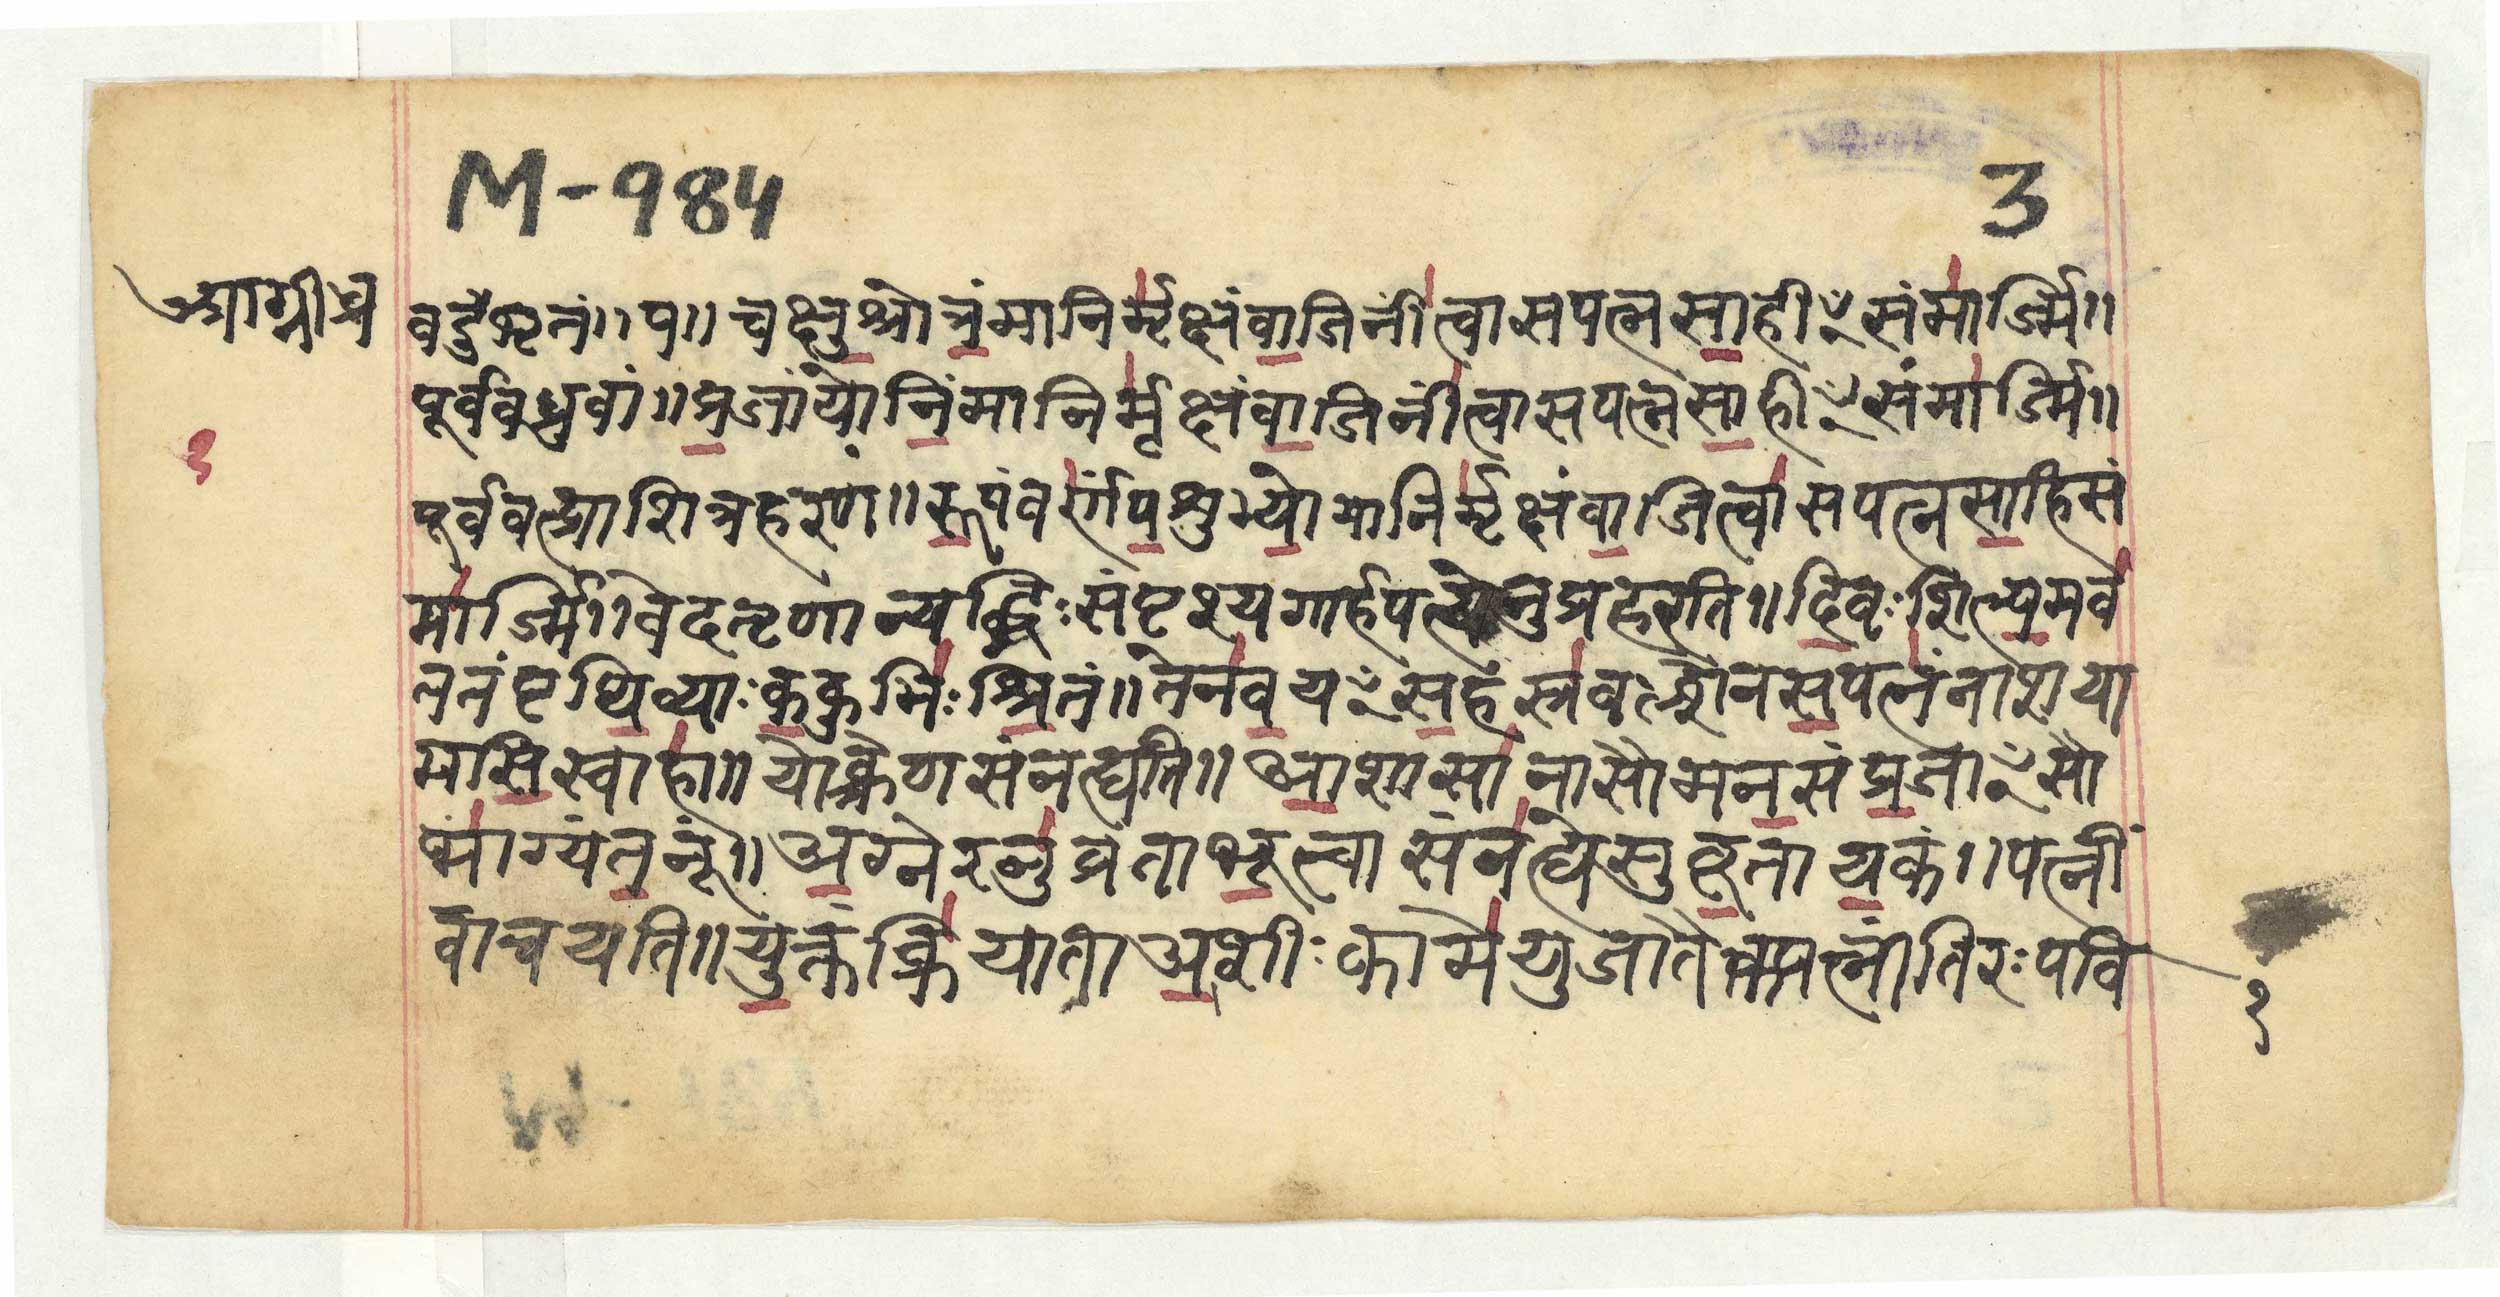 M-१८४
3
आग्नीध्र
वदुपभृतं॥प॥चक्षुश्रोत्रंमानिर्मृक्षंवाजिनींत्वासपत्नसाहीꣳसंमार्ज्मि॥
पूर्ववध्रुवां॥प्रजांयोनिंमानिर्मृक्षंवाजिनींत्वासपत्नसाहीꣳसंमार्ज्मि॥
पूर्ववत्प्राशित्रहरणं॥रूपंवर्णंपशुभ्योमानिर्मृक्षंवाजित्वासपत्नसाहिसं
मार्ज्मि॥वेदतृणान्यद्भिःसंपृश्यगार्हपत्येनुप्रहरति॥दिवःशिल्पमव
ततंपृथिव्याःककुभिःश्रितं॥तेनवयꣳसहस्रवल्शेनसपत्नंनाशया
मसिस्वाहा॥योक्त्रेणसंनह्यति॥आशासानासौमनसंप्रजाꣳसौ
भाग्यंतनूं॥अग्नेरनुव्रताभूत्वासंनह्येसुकृतायकं॥पत्नीं
वाचयति॥युक्तंक्रियाताअशीःकामेयुजातै॥पत्नींतिरःपवि
१